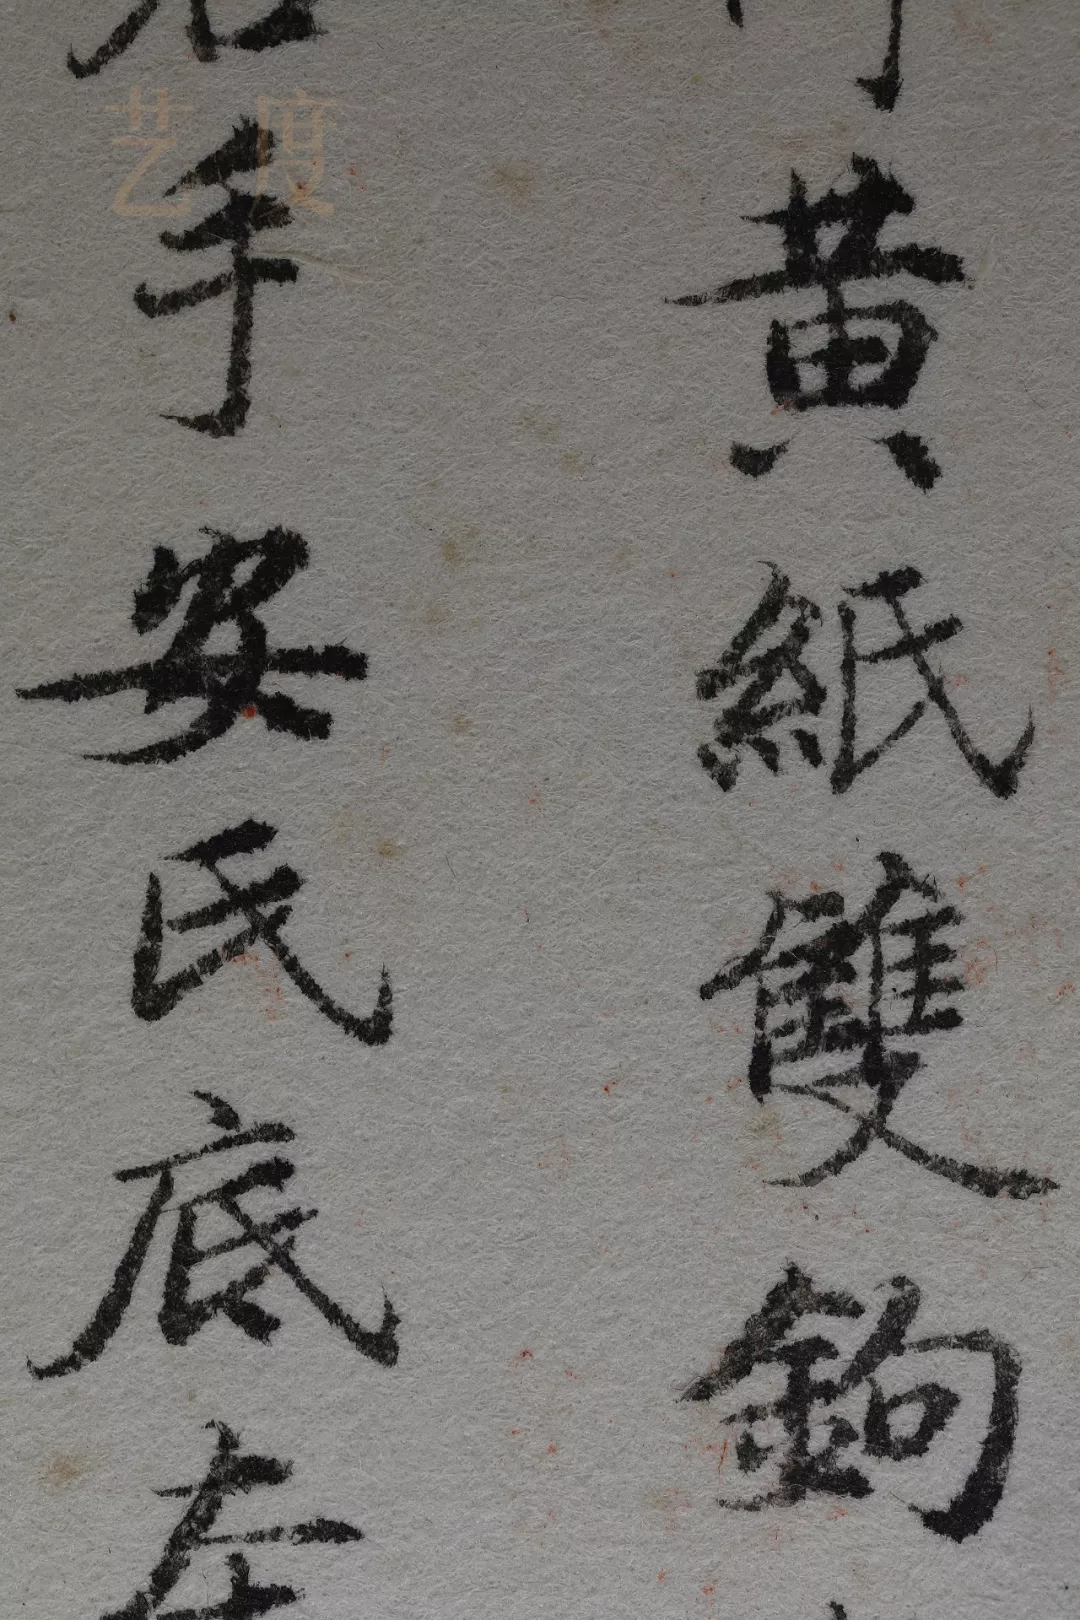 黄紙雙鉤
手安氏底左
艺度